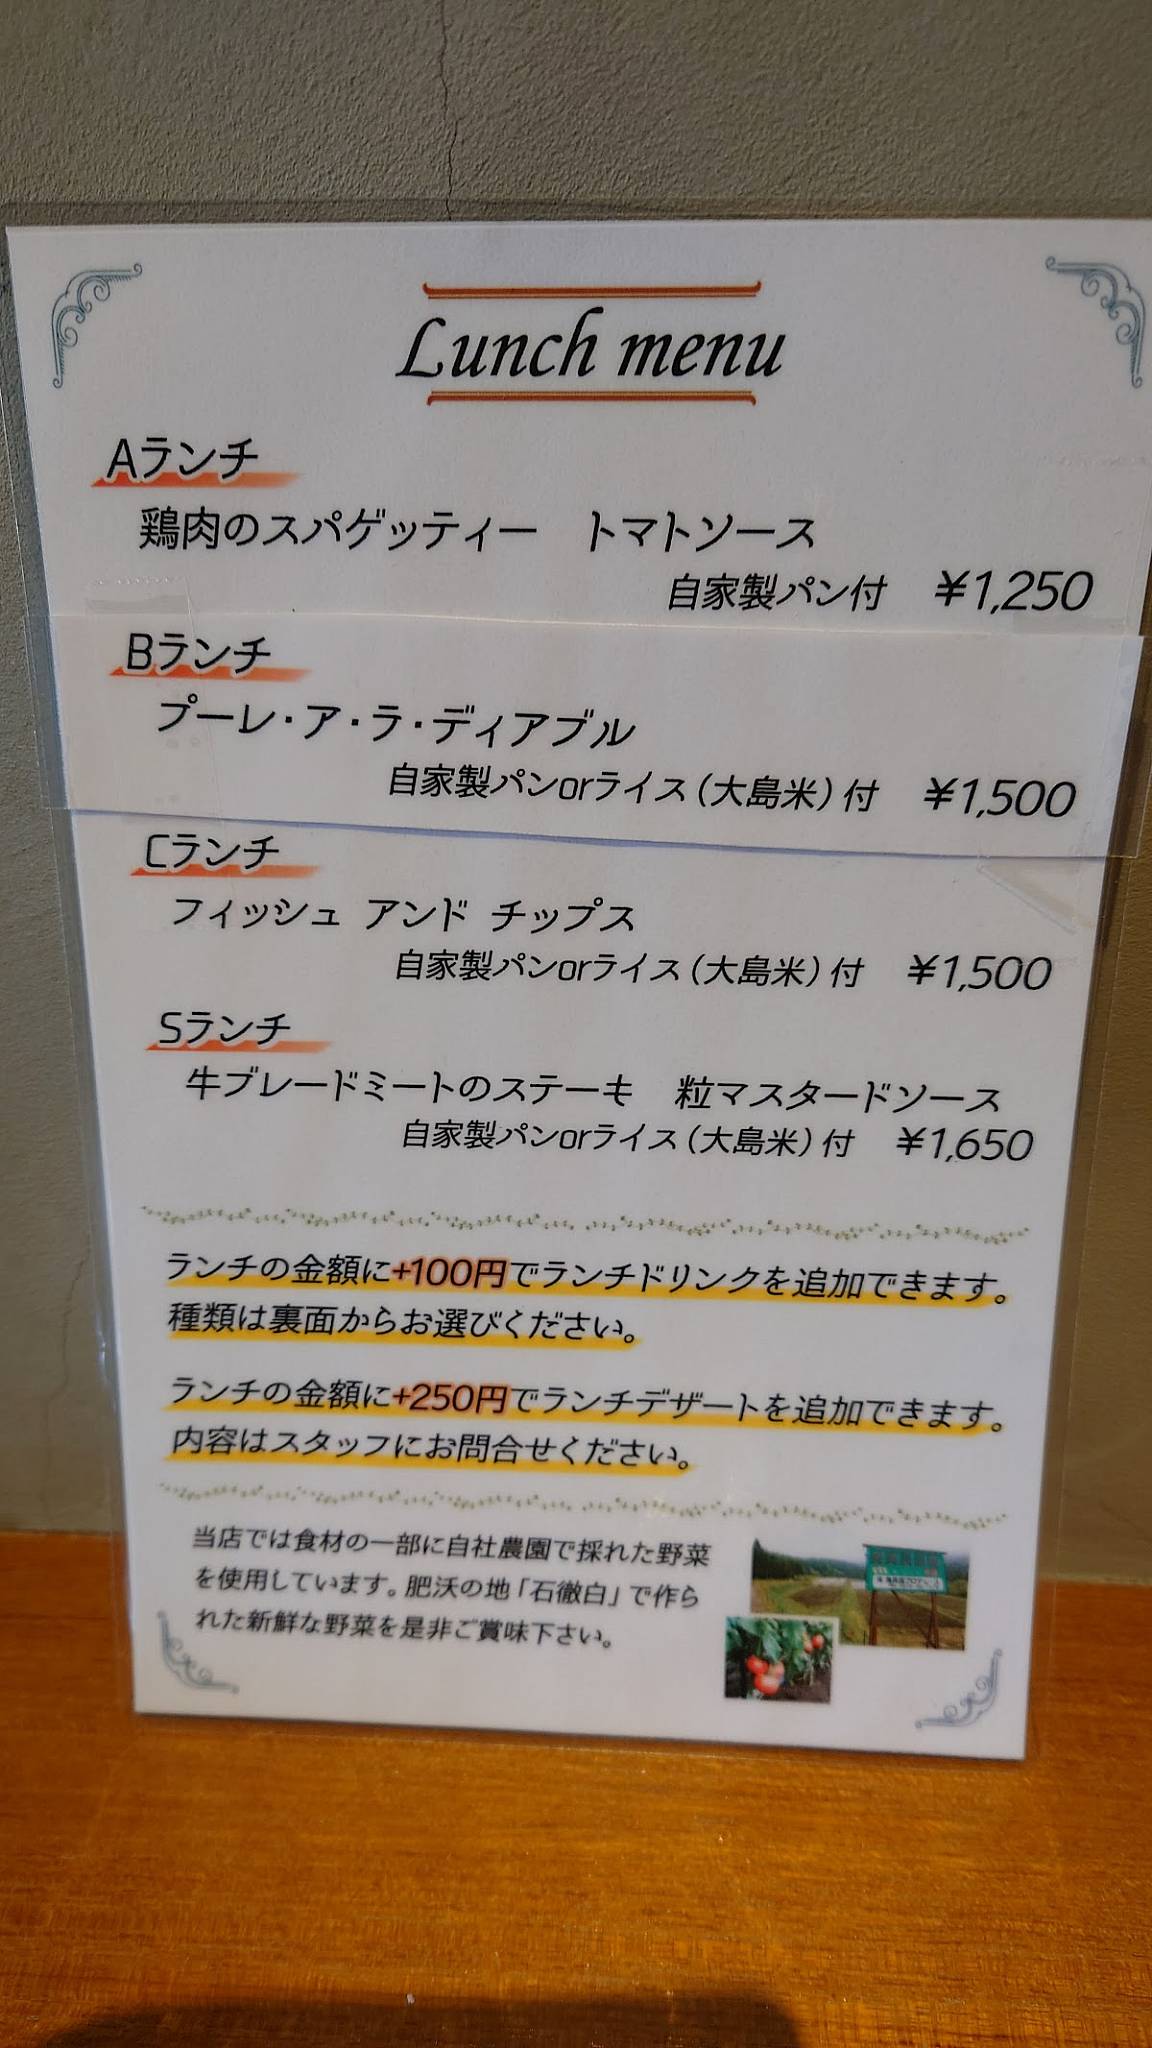 Lunch menu
Aランチ
鶏肉のスパゲッティー　トマトソース
自家製パン付　¥1,250
Bランチ
プーレ・ア・ラ・ディアブル
自家製パンorライス（大島米）付　¥1,500
Cランチ
フィッシュ アンド チップス
自家製パンorライス（大島米）付　¥1,500
Sランチ
牛ブレードミートのステーキ　粒マスタードソース
自家製パンorライス（大島米）付　¥1,650
ランチの金額に+100円でランチドリンクを追加できます。
種類は裏面からお選びください。
ランチの金額に+250円でランチデザートを追加できます。
内容はスタッフにお問合せください。
当店では食材の一部に自社農園で採れた野菜
を使用しています。肥沃の地「石徹白」で作ら
れた新鮮な野菜を是非ご賞味下さい。